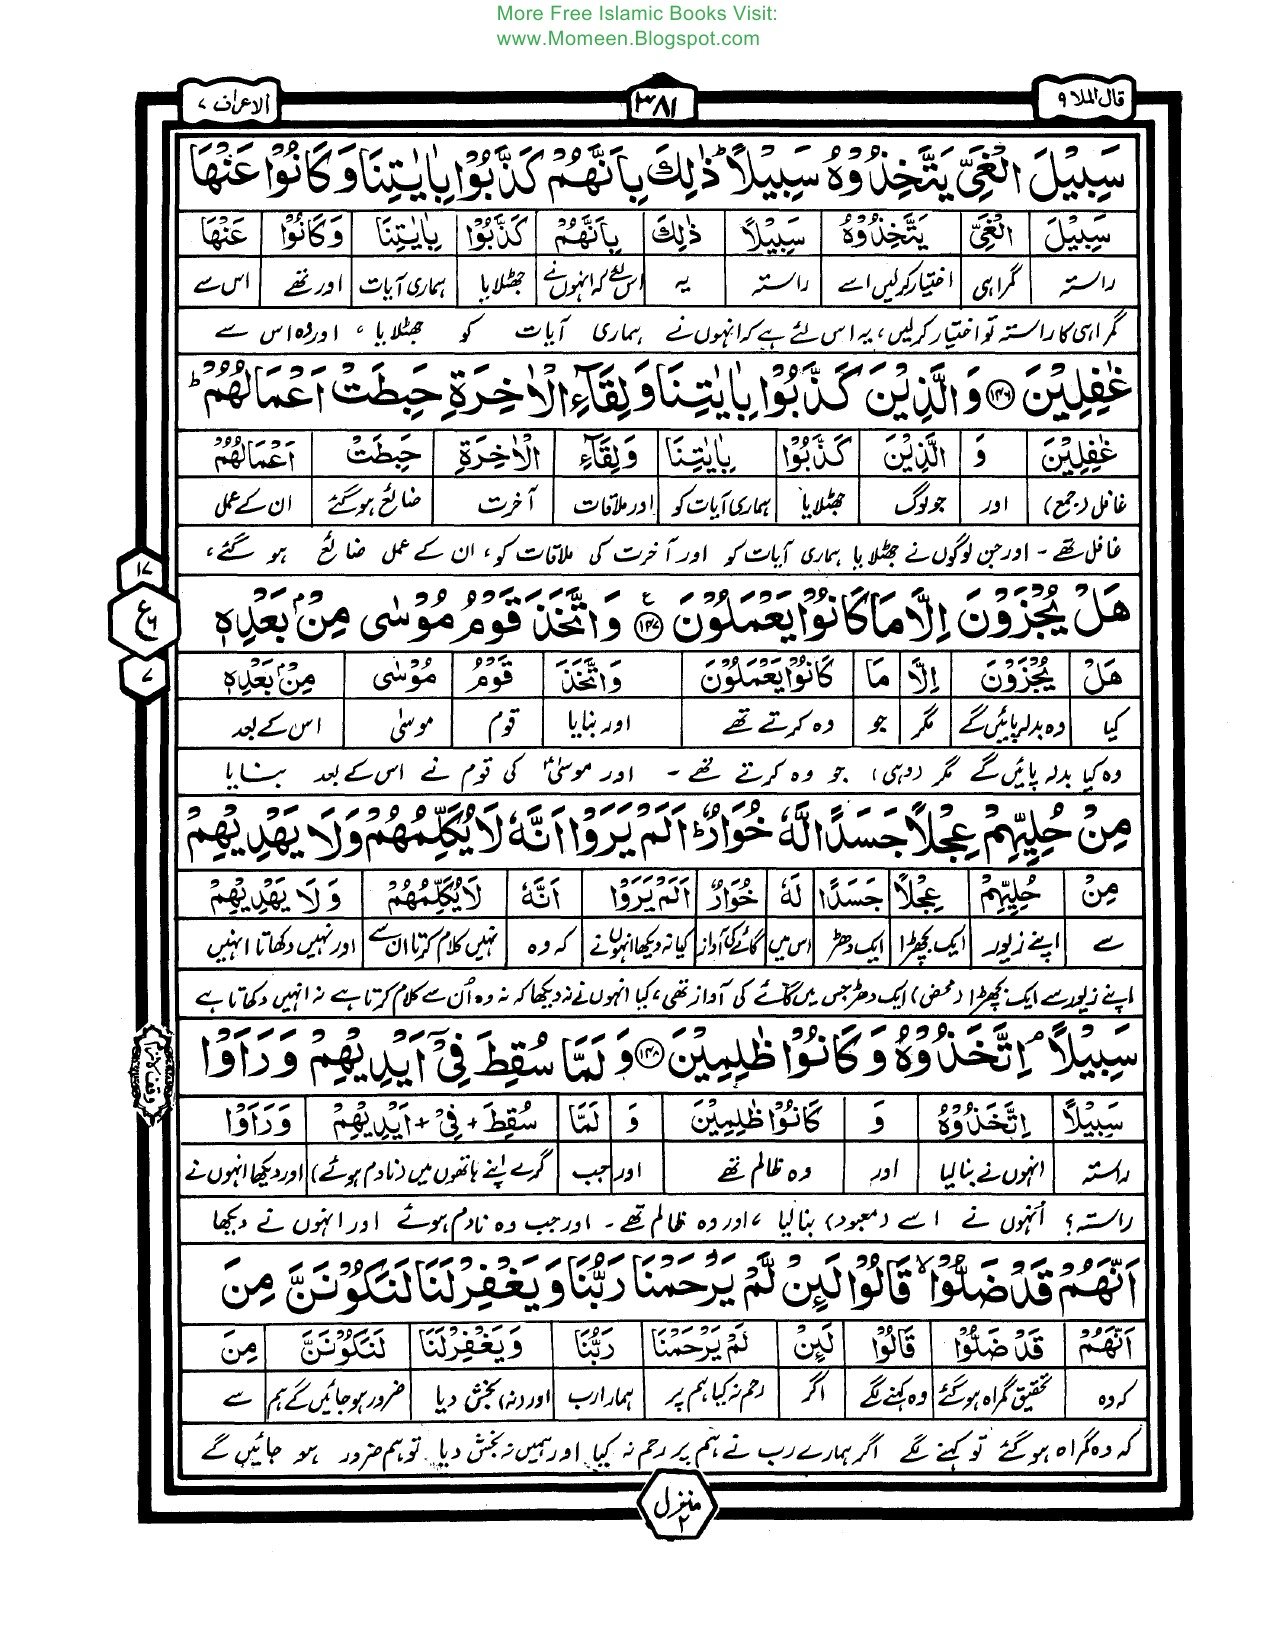 More Free Islamic Books Visit:
www.Momeen.Blogspot.com
قال الملا ۹
۳۸۱
الاعراف ۷
سَبِيْلَ الْغَيِّ يَتَّخِذُوْهُ سَبِيْلًا ؕ ذٰلِكَ بِاَنَّهُمْ كَذَّبُوْا بِاٰيٰتِنَا وَكَانُوْا عَنْهَا
سَبِيْلَ الْغَيِّ يَتَّخِذُوْهُ سَبِيْلًا ذٰلِكَ بِاَنَّهُمْ كَذَّبُوْا بِاٰيٰتِنَا وَكَانُوْا عَنْهَا
راستہ گمراہی اختیار کرلیں اسے راستہ یہ اس لئے کہ انہوں نے جھٹلایا ہماری آیات اور تھے اس سے
گمراہی کا راستہ تو اختیار کرلیں، یہ اس لئے ہے کہ انہوں نے ہماری آیات کو جھٹلایا، اور وہ اس سے
غٰفِلِيْنَ ﴿۱۴۶﴾ وَالَّذِيْنَ كَذَّبُوْا بِاٰيٰتِنَا وَلِقَآءِ الْاٰخِرَةِ حَبِطَتْ اَعْمَالُهُمْ ؕ
غٰفِلِيْنَ وَ الَّذِيْنَ كَذَّبُوْا بِاٰيٰتِنَا وَلِقَآءِ الْاٰخِرَةِ حَبِطَتْ اَعْمَالُهُمْ
غافل (جمع) اور جو لوگ جھٹلایا ہماری آیات کو اور ملاقات آخرت ضائع ہوگئے ان کے عمل
غافل تھے - اور جن لوگوں نے جھٹلایا ہماری آیات کو اور آخرت کی ملاقات کو، ان کے عمل ضائع ہو گئے،
۱۷
ع ۶
۷
هَلْ يُجْزَوْنَ اِلَّا مَا كَانُوْا يَعْمَلُوْنَ ﴿۱۴۷﴾ ع وَاتَّخَذَ قَوْمُ مُوْسٰى مِنْۢ بَعْدِهٖ
هَلْ يُجْزَوْنَ اِلَّا مَا كَانُوْا يَعْمَلُوْنَ وَاتَّخَذَ قَوْمُ مُوْسٰى مِنْۢ بَعْدِهٖ
کیا وہ بدلہ پائیں گے مگر جو وہ کرتے تھے اور بنایا قوم موسٰی اس کے بعد
وہ کیا بدلہ پائیں گے مگر (وہی) جو وہ کرتے تھے - اور موسٰیؑ کی قوم نے اس کے بعد بنایا
مِنْ حُلِيِّهِمْ عِجْلًا جَسَدًا لَّهٗ خُوَارٌ ؕ اَلَمْ يَرَوْا اَنَّهٗ لَا يُكَلِّمُهُمْ وَلَا يَهْدِيْهِمْ
مِنْ حُلِيِّهِمْ عِجْلًا جَسَدًا لَهٗ خُوَارٌ اَلَمْ يَرَوْا اَنَّهٗ لَا يُكَلِّمُهُمْ وَلَا يَهْدِيْهِمْ
سے اپنے زیور ایک بچھڑا ایک دھڑ اس میں گائے کی آواز کیا نہ دیکھا انہوں نے کہ وہ نہیں کلام کرتا ان سے اور نہیں دکھاتا انہیں
اپنے زیور سے ایک بچھڑا (محض) ایک دھڑ جس میں گائے کی آواز تھی، کیا انہوں نے نہ دیکھا کہ نہ وہ اُن سے کلام کرتا ہے نہ انہیں دکھاتا ہے
سَبِيْلًا ۘ اِتَّخَذُوْهُ وَكَانُوْا ظٰلِمِيْنَ ﴿۱۴۸﴾ وَلَمَّا سُقِطَ فِيْٓ اَيْدِيْهِمْ وَرَاَوْا
سَبِيْلًا اِتَّخَذُوْهُ وَ كَانُوْا ظٰلِمِيْنَ وَ لَمَّا سُقِطَ + فِيْ + اَيْدِيْهِمْ وَرَاَوْا
راستہ انہوں نے بنالیا اور وہ ظالم تھے اور جب گرے اپنے ہاتھوں میں (نادم ہوئے) اور دیکھا انہوں نے
راستہ؟ اُنہوں نے اسے (معبود) بنالیا، اور وہ ظالم تھے - اور جب وہ نادم ہوئے اور انہوں نے دیکھا
اَنَّهُمْ قَدْ ضَلُّوْا ۙ قَالُوْا لَىِٕنْ لَّمْ يَرْحَمْنَا رَبُّنَا وَيَغْفِرْ لَنَا لَنَكُوْنَنَّ مِنَ
اَنَّهُمْ قَدْ ضَلُّوْا قَالُوْا لَىِٕنْ لَمْ يَرْحَمْنَا رَبُّنَا وَيَغْفِرْ لَنَا لَنَكُوْنَنَّ مِنَ
کہ وہ تحقیق گمراہ ہوگئے وہ کہنے لگے اگر رحم نہ کیا ہم پر ہمارا رب اور (نہ) بخش دیا ضرور ہوجائیں گے ہم سے
کہ وہ گمراہ ہوگئے تو کہنے لگے اگر ہمارے رب نے ہم پر رحم نہ کیا اور ہمیں نہ بخش دیا. تو ہم ضرور ہو جائیں گے
منزل ۲